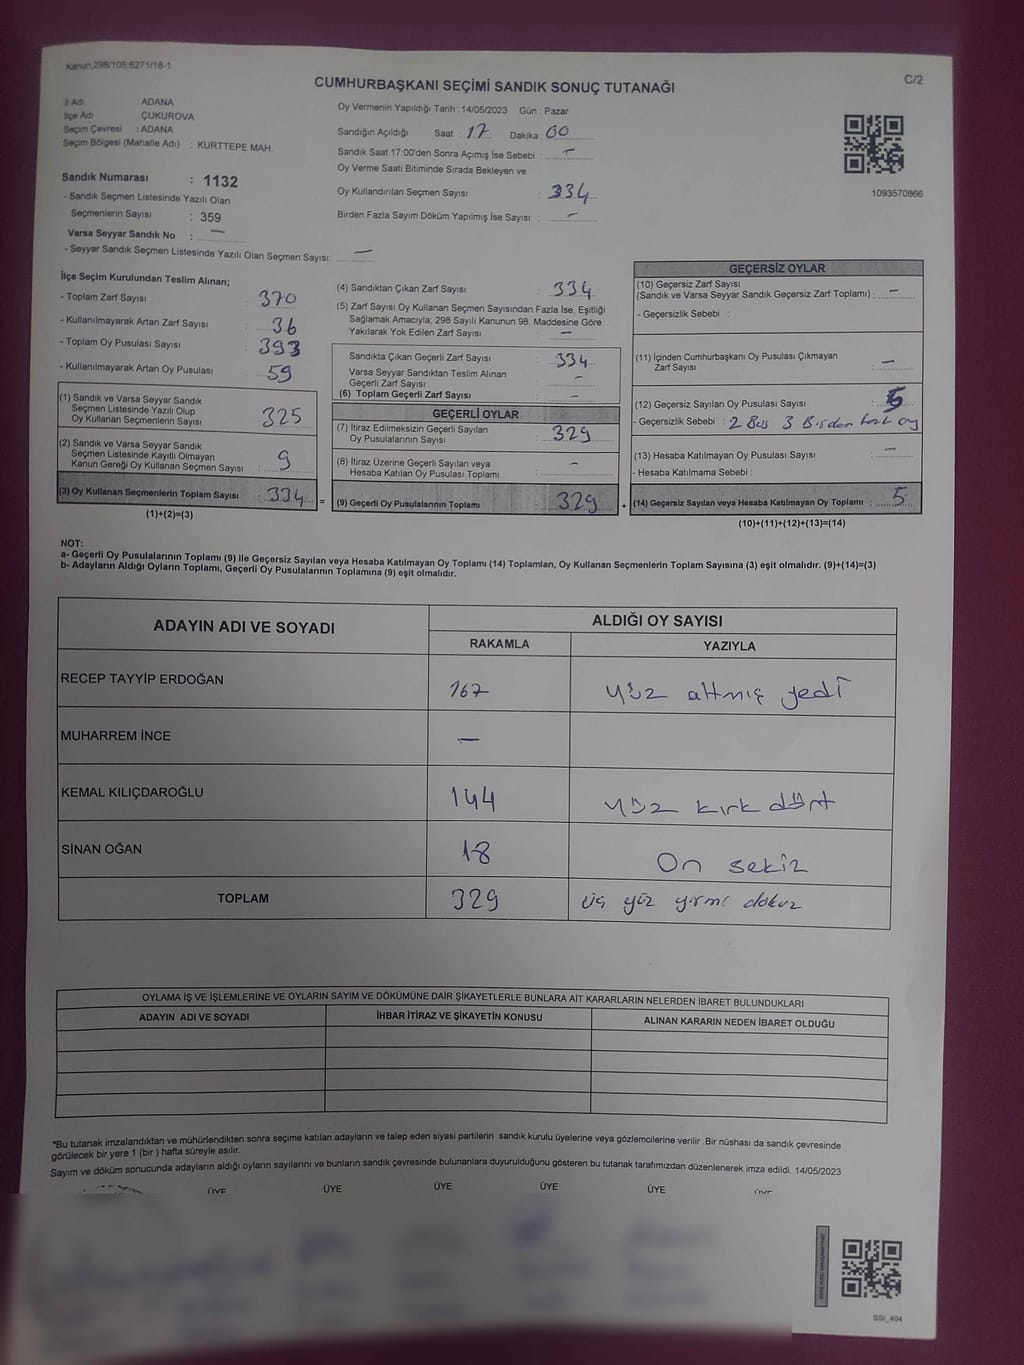 Kanun:298/105;6271/18-1
C/2
CUMHURBAŞKANI SEÇİMİ SANDIK SONUÇ TUTANAĞI
İl Adı : ADANA
İlçe Adı ÇUKUROVA
Seçim Çevresi : ADANA
Seçim Bölgesi (Mahalle Adı) : KURTTEPE MAH.
Sandık Numarası : 1132
- Sandık Seçmen Listesinde Yazılı Olan
Seçmenlerin Sayısı : 359
Varsa Seyyar Sandık No : —
- Seyyar Sandık Seçmen Listesinde Yazılı Olan Seçmen Sayısı: —
Oy Vermenin Yapıldığı Tarih :14/05/2023 Gün : Pazar
Sandığın Açıldığı Saat : 17 Dakika : 00
Sandık Saat 17:00'den Sonra Açımış İse Sebebi : —
Oy Verme Saati Bitiminde Sırada Bekleyen ve
Oy Kullandırılan Seçmen Sayısı : 334
Birden Fazla Sayım Döküm Yapılmış İse Sayısı : —
1093570866
İlçe Seçim Kurulundan Teslim Alınan;
- Toplam Zarf Sayısı : 370
- Kullanılmayarak Artan Zarf Sayısı : 36
- Toplam Oy Pusulası Sayısı : 393
- Kullanılmayarak Artan Oy Pusulası : 59
(1) Sandık ve Varsa Seyyar Sandık
Seçmen Listesinde Yazılı Olup
Oy Kullanan Seçmenlerin Sayısı : 325
(2) Sandık ve Varsa Seyyar Sandık
Seçmen Listesinde Kayıtlı Olmayan
Kanun Gereği Oy Kullanan Seçmen Sayısı : 9
(3) Oy Kullanan Seçmenlerin Toplam Sayısı : 334 =
(1)+(2)=(3)
(4) Sandıktan Çıkan Zarf Sayısı : 334
(5) Zarf Sayısı Oy Kullanan Seçmen Sayısından Fazla İse, Eşitliği
Sağlamak Amacıyla; 298 Sayılı Kanunun 98. Maddesine Göre
Yakılarak Yok Edilen Zarf Sayısı : —
Sandıkta Çıkan Geçerli Zarf Sayısı : 334
Varsa Seyyar Sandıktan Teslim Alınan
Geçerli Zarf Sayısı : —
(6) Toplam Geçerli Zarf Sayısı : —
GEÇERLİ OYLAR
(7) İtiraz Edilmeksizin Geçerli Sayılan
Oy Pusulalarının Sayısı : 329
(8) İtiraz Üzerine Geçerli Sayılan veya
Hesaba Katılan Oy Pusulası Toplamı : —
(9) Geçerli Oy Pusulalarının Toplamı : 329 +
GEÇERSİZ OYLAR
(10) Geçersiz Zarf Sayısı
(Sandık ve Varsa Seyyar Sandık Geçersiz Zarf Toplamı) : —
- Geçersizlik Sebebi :
(11) İçinden Cumhurbaşkanı Oy Pusulası Çıkmayan
Zarf Sayısı : —
(12) Geçersiz Sayılan Oy Pusulası Sayısı : 5
- Geçersizlik Sebebi : 2 Boş 3 Birden
(13) Hesaba Katılmayan Oy Pusulası Sayısı : —
- Hesaba Katılmama Sebebi :
(14) Geçersiz Sayılan veya Hesaba Katılmayan Oy Toplamı : 5
(10)+(11)+(12)+(13)=(14)
NOT:
a- Geçerli Oy Pusulalarının Toplamı (9) ile Geçersiz Sayılan veya Hesaba Katılmayan Oy Toplamı (14) Toplamları, Oy Kullanan Seçmenlerin Toplam Sayısına (3) eşit olmalıdır. (9)+(14)=(3)
b- Adayların Aldığı Oyların Toplamı, Geçerli Oy Pusulalarının Toplamına (9) eşit olmalıdır.
ADAYIN ADI VE SOYADI
ALDIĞI OY SAYISI
RAKAMLA YAZIYLA
RECEP TAYYİP ERDOĞAN 167 yüz altmış yedi
MUHARREM İNCE —
KEMAL KILIÇDAROĞLU 144 yüz kırk dört
SİNAN OĞAN 18 On sekiz
TOPLAM 329 üç yüz yirmi dokuz
OYLAMA İŞ VE İŞLEMLERİNE VE OYLARIN SAYIM VE DÖKÜMÜNE DAİR ŞİKAYETLERLE BUNLARA AİT KARARLARIN NELERDEN İBARET BULUNDUKLARI
ADAYIN ADI VE SOYADI İHBAR İTİRAZ VE ŞİKAYETİN KONUSU ALINAN KARARIN NEDEN İBARET OLDUĞU
*Bu tutanak imzalandıktan ve mühürlendikten sonra seçime katılan adayların ve talep eden siyasi partilerin sandık kurulu üyelerine veya gözlemcilerine verilir. Bir nüshası da sandık çevresinde
görülecek bir yere 1 (bir ) hafta süreyle asılır.
Sayım ve döküm sonucunda adayların aldığı oyların sayılarını ve bunların sandık çevresinde bulunanlara duyurulduğunu gösteren bu tutanak tarafımızdan düzenlenerek imza edildi. 14/05/2023
ÜYE ÜYE ÜYE ÜYE ÜYE
SSİ_404